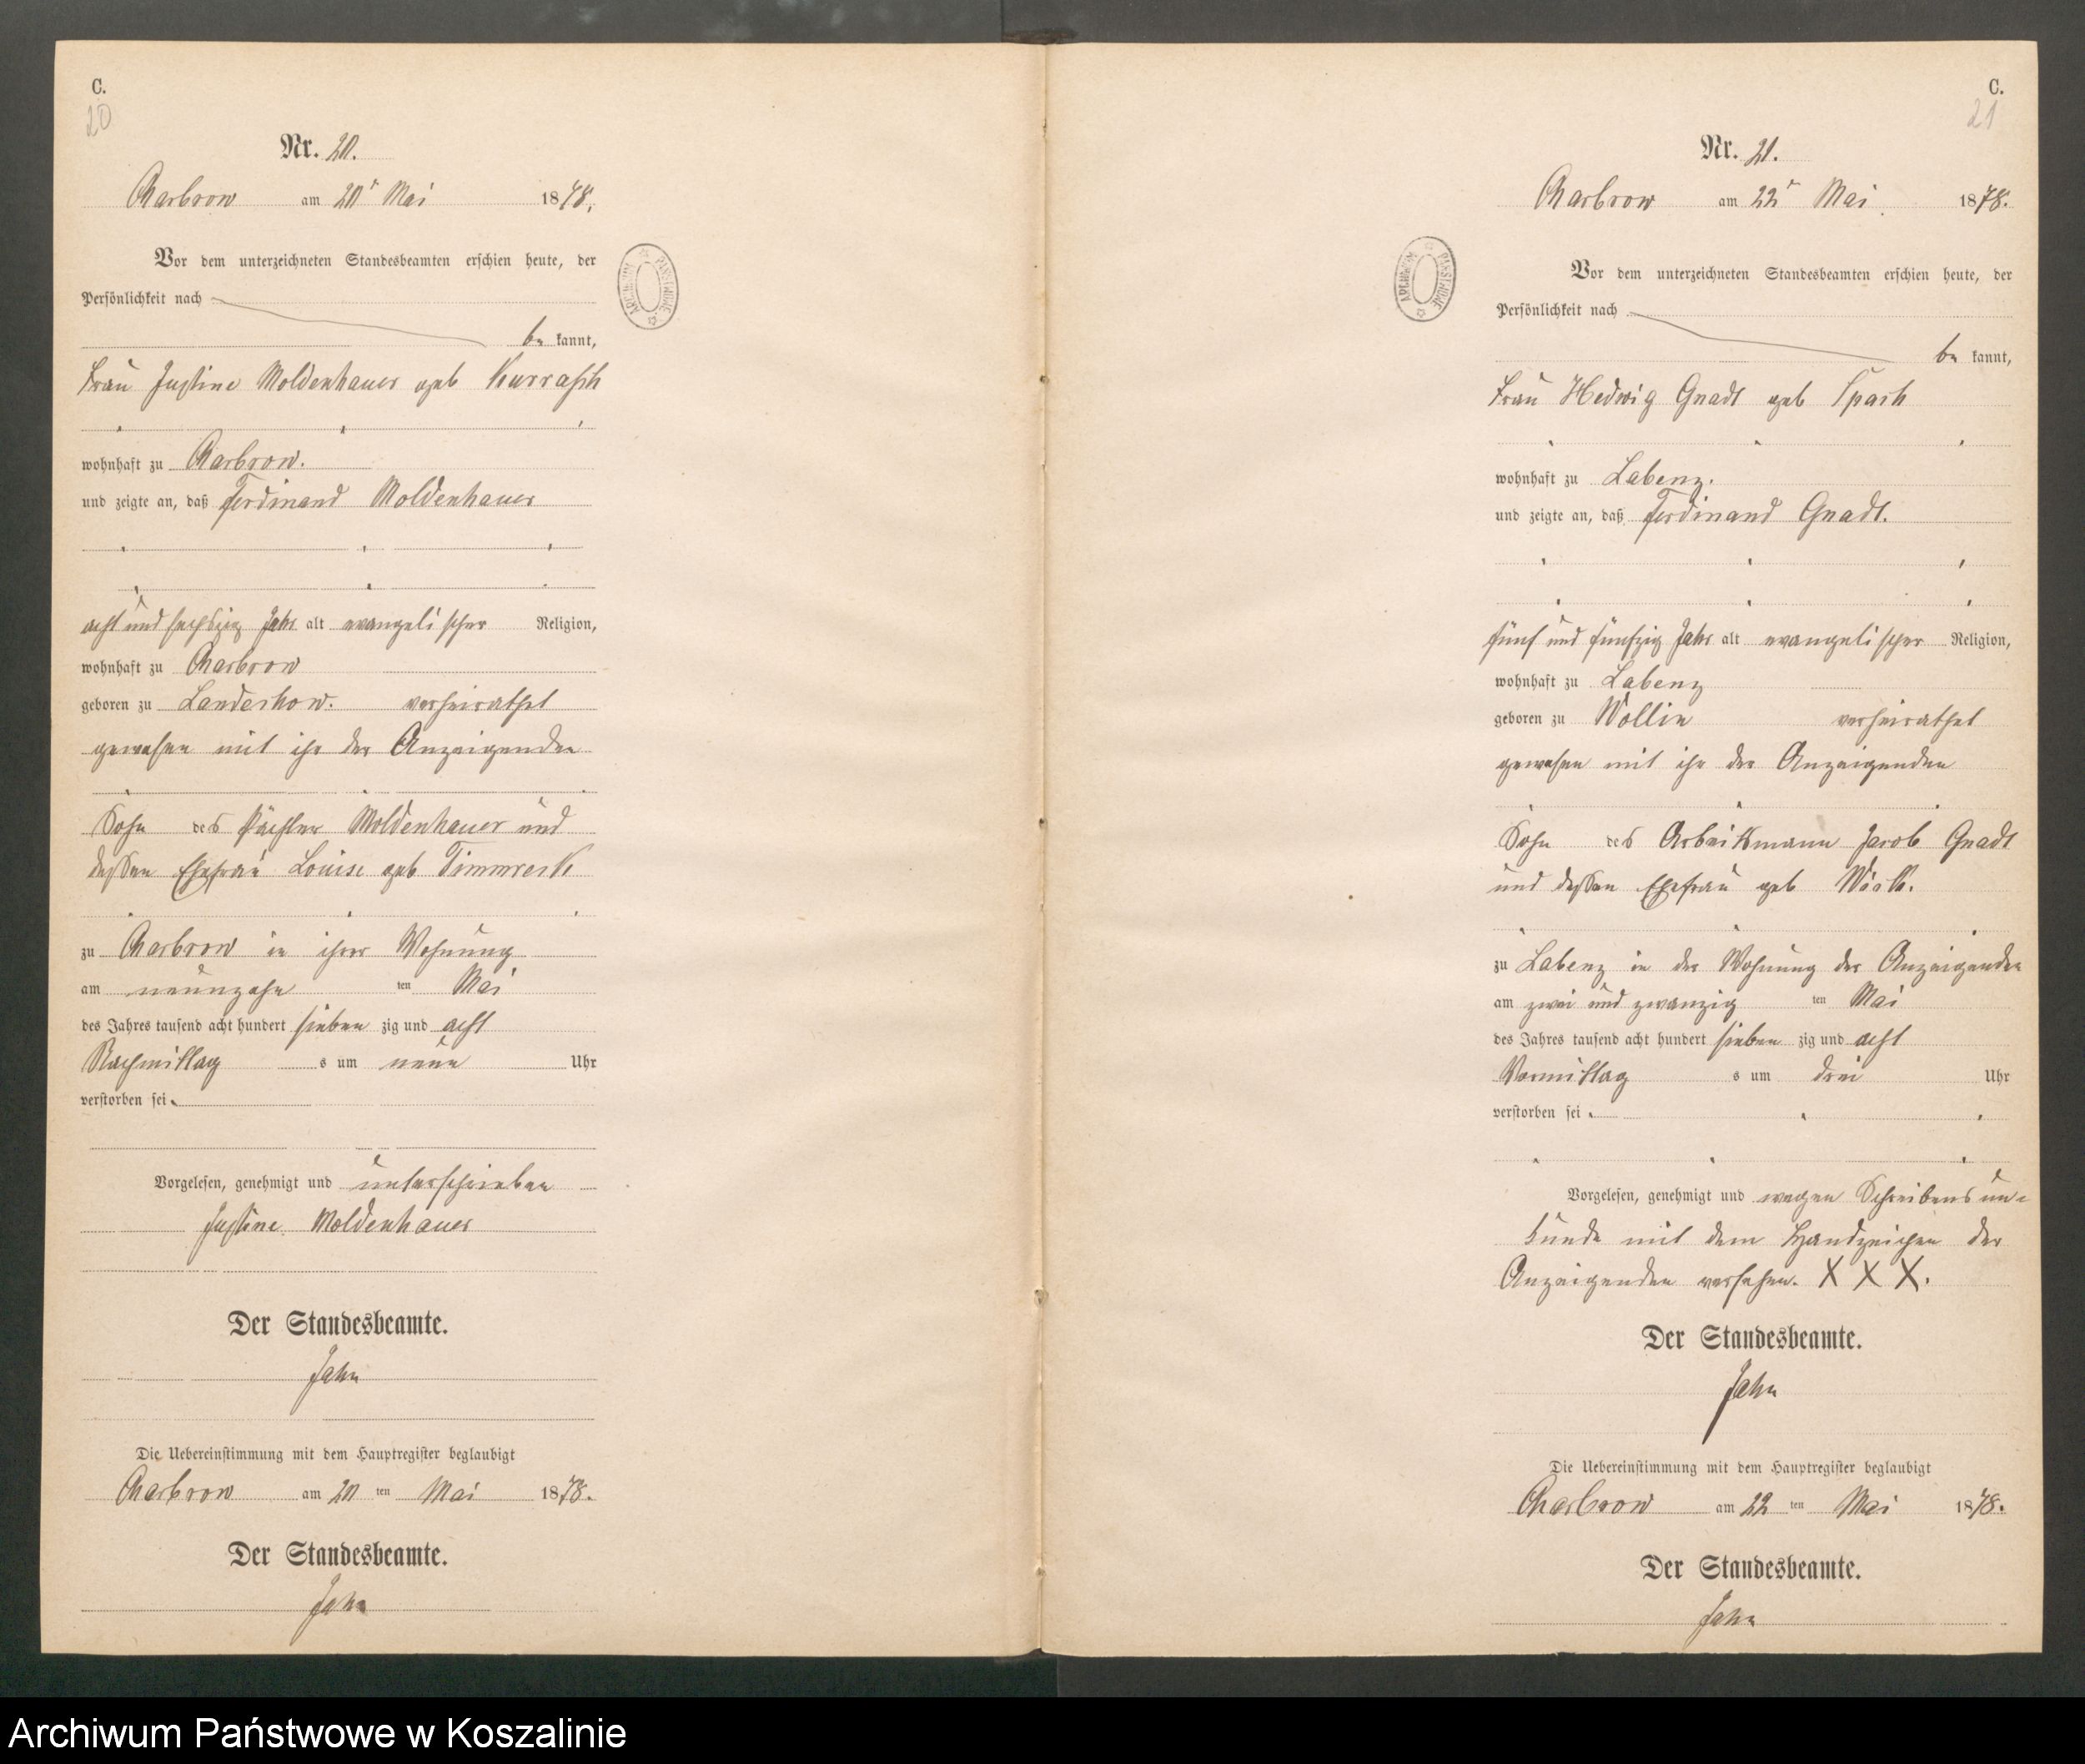 C.
20
Nr. 20.
Charbrow am 20t Mai 1878.
Vor dem unterzeichneten Standesbeamten erschien heute, der
Persönlichkeit nach
be kannt,
Frau Justine Moldenhauer geb Kurrasch
wohnhaft zu Charbrow.
und zeigte an, daß Ferdinand Moldenhauer
acht und sechszig Jahr alt evangelischer Religion,
wohnhaft zu Charbrow
geboren zu Landechow. verheirathet
gewesen mit ihr der Anzeigenden
Sohn des Pächter Moldenhauer und
dessen Ehefrau Louise geb Timmreck
zu Charbrow in ihrer Wohnung
am neunzehn ten Mai
des Jahres tausend acht hundert sieben zig und acht
Nachmittag s um neun Uhr
verstorben sei
Vorgelesen, genehmigt und unterschrieben
Justine Moldenhauer
Der Standesbeamte.
Jahn
Die Uebereinstimmung mit dem Hauptregister beglaubigt
Charbrow am 20 ten Mai 1878.
Der Standesbeamte.
Jahn
C.
21
Nr. 21.
Charbrow am 22t Mai 1878.
Vor dem unterzeichneten Standesbeamten erschien heute, der
Persönlichkeit nach
be kannt,
Frau Hedwig Gnadt geb Spach
wohnhaft zu Labenz.
und zeigte an, daß Ferdinand Gnadt.
fünf und fünfzig Jahr alt evangelischer Religion,
wohnhaft zu Labenz
geboren zu Wollin verheirathet
gewesen mit ihr der Anzeigenden
Sohn des Arbeitsmann Jacob Gnadt
und dessen Ehefrau geb
zu Labenz in der Wohnung der Anzeigenden
am zwei und zwanzig ten Mai
des Jahres tausend acht hundert sieben zig und acht
Vormittag s um drei Uhr
verstorben sei
Vorgelesen, genehmigt und wegen Schreibensun-
kunde mit dem Handzeichen der
Anzeigenden versehen. X X X.
Der Standesbeamte.
Jahn
Die Uebereinstimmung mit dem Hauptregister beglaubigt
Charbrow am 22 ten Mai 1878.
Der Standesbeamte.
Jahn
ARCHIWUM PAŃSTWOWE
ARCHIWUM PAŃSTWOWE
Archiwum Państwowe w Koszalinie